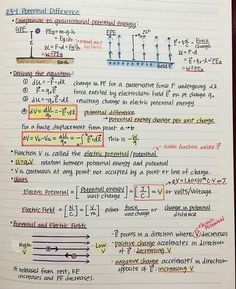 23.1 Potential Difference
• Comparable to gravitational potential energy:
GPE
PEg = m·g·h
= Fg·h
W = F·d = Fg·h
∴ W = PEg
EPE
F = q·E = Force/charge
W = F·d
• Deriving the equation:
① dW = F·dℓ change in PE for a conservative force F undergoing dℓ
② F = q₀E force exerted by electrostatic field E on pt. charge q₀
③ dU = -q₀E·dℓ resulting change in electric potential energy
④ dV = dU/q₀ = -E·dℓ potential difference
→ potential energy change per unit charge
for a finite displacement from point a→b
ΔV = Vb - Va = ΔU/q₀ = -∫E·dℓ This is
scalar function, unlike E
• Function V is called the electric potential/potential
• U = q₀V relation between potential energy and potential
• V is continuous at any point not occupied by a point or line of charge.
• Units
Electric Potential = [Potential energy / unit charge] = [J/C] = V or Volts/Average
Electric Field = [N/C] = [V/m] either force/unit charge or change in potential/distance
• Potential and Electric Field:
High V
Low V
E points in a direction where V decreases
- positive charge accelerates in direction of E: decreasing V
- negative charge accelerates in direction opposite of E: increasing V
If released from rest, KE increases and PE decreases.